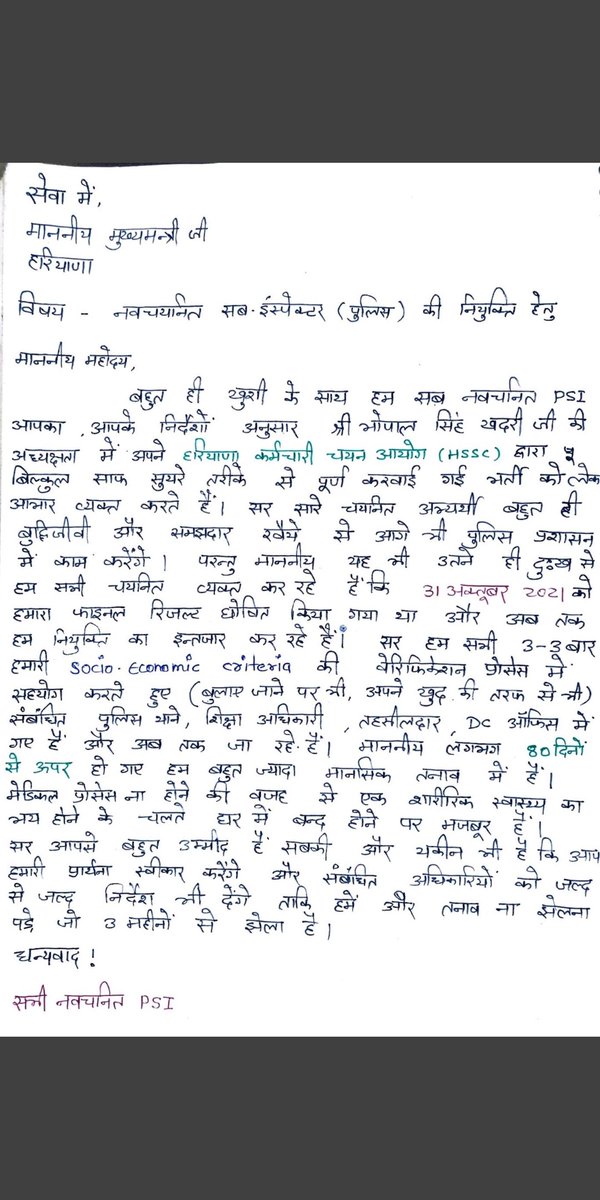 सेवा में,
माननीय मुख्यमन्त्री जी
हरियाणा
विषय - नवचयनित सब-इंस्पेक्टर (पुलिस) की नियुक्ति हेतु
माननीय महोदय,
बहुत ही खुशी के साथ हम सब नवचनित PSI
आपका, आपके निर्देशों अनुसार श्री भोपाल सिंह खदरी जी की
अध्यक्षता में अपने हरियाणा कर्मचारी चयन आयोग (HSSC) द्वारा
बिल्कुल साफ सुथरे तरीके से पूर्ण करवाई गई भर्ती को लेक
आभार व्यक्त करते हैं। सर सारे चयनित अभ्यर्थी बहुत ही
बुद्धिजीवी और समझदार रवैये से आगे भी पुलिस प्रशासन
में काम करेंगे। परन्तु माननीय यह भी उतने ही दुःख से
हम सभी चयनित व्यक्त कर रहे हैं कि 31 अक्तूबर 2021 को
हमारा फाइनल रिजल्ट घोषित किया गया था और अब तक
हम नियुक्ति का इन्तजार कर रहे हैं। सर हम सभी 3-3 बार
हमारी Socio-Economic criteria की वेरिफिकेशन प्रोसेस में
सहयोग करते हुए (बुलाए जाने पर भी, अपने खुद की तरफ से भी)
संबंधित पुलिस थाने, शिक्षा अधिकारी, तहसीलदार, DC ऑफिस में
गए हैं और अब तक जा रहे हैं। माननीय लगभग 80 दिनों
से ऊपर हो गए हम बहुत ज्यादा मानसिक तनाव में हैं।
मेडिकल प्रोसेस ना होने की वजह से एक शारीरिक स्वास्थ्य का
भय होने के चलते घर में बन्द होने पर मजबूर हैं।
सर आपसे बहुत उम्मीद हैं सबकी और यकीन भी है कि आप
हमारी प्रार्थना स्वीकार करेंगे और संबंधित अधिकारियों को जल्द
से जल्द निर्देश भी देंगे ताकि हमें और तनाव ना झेलना
पड़े जो 3 महीनों से झेला है।
धन्यवाद!
सभी नवचनित PSI